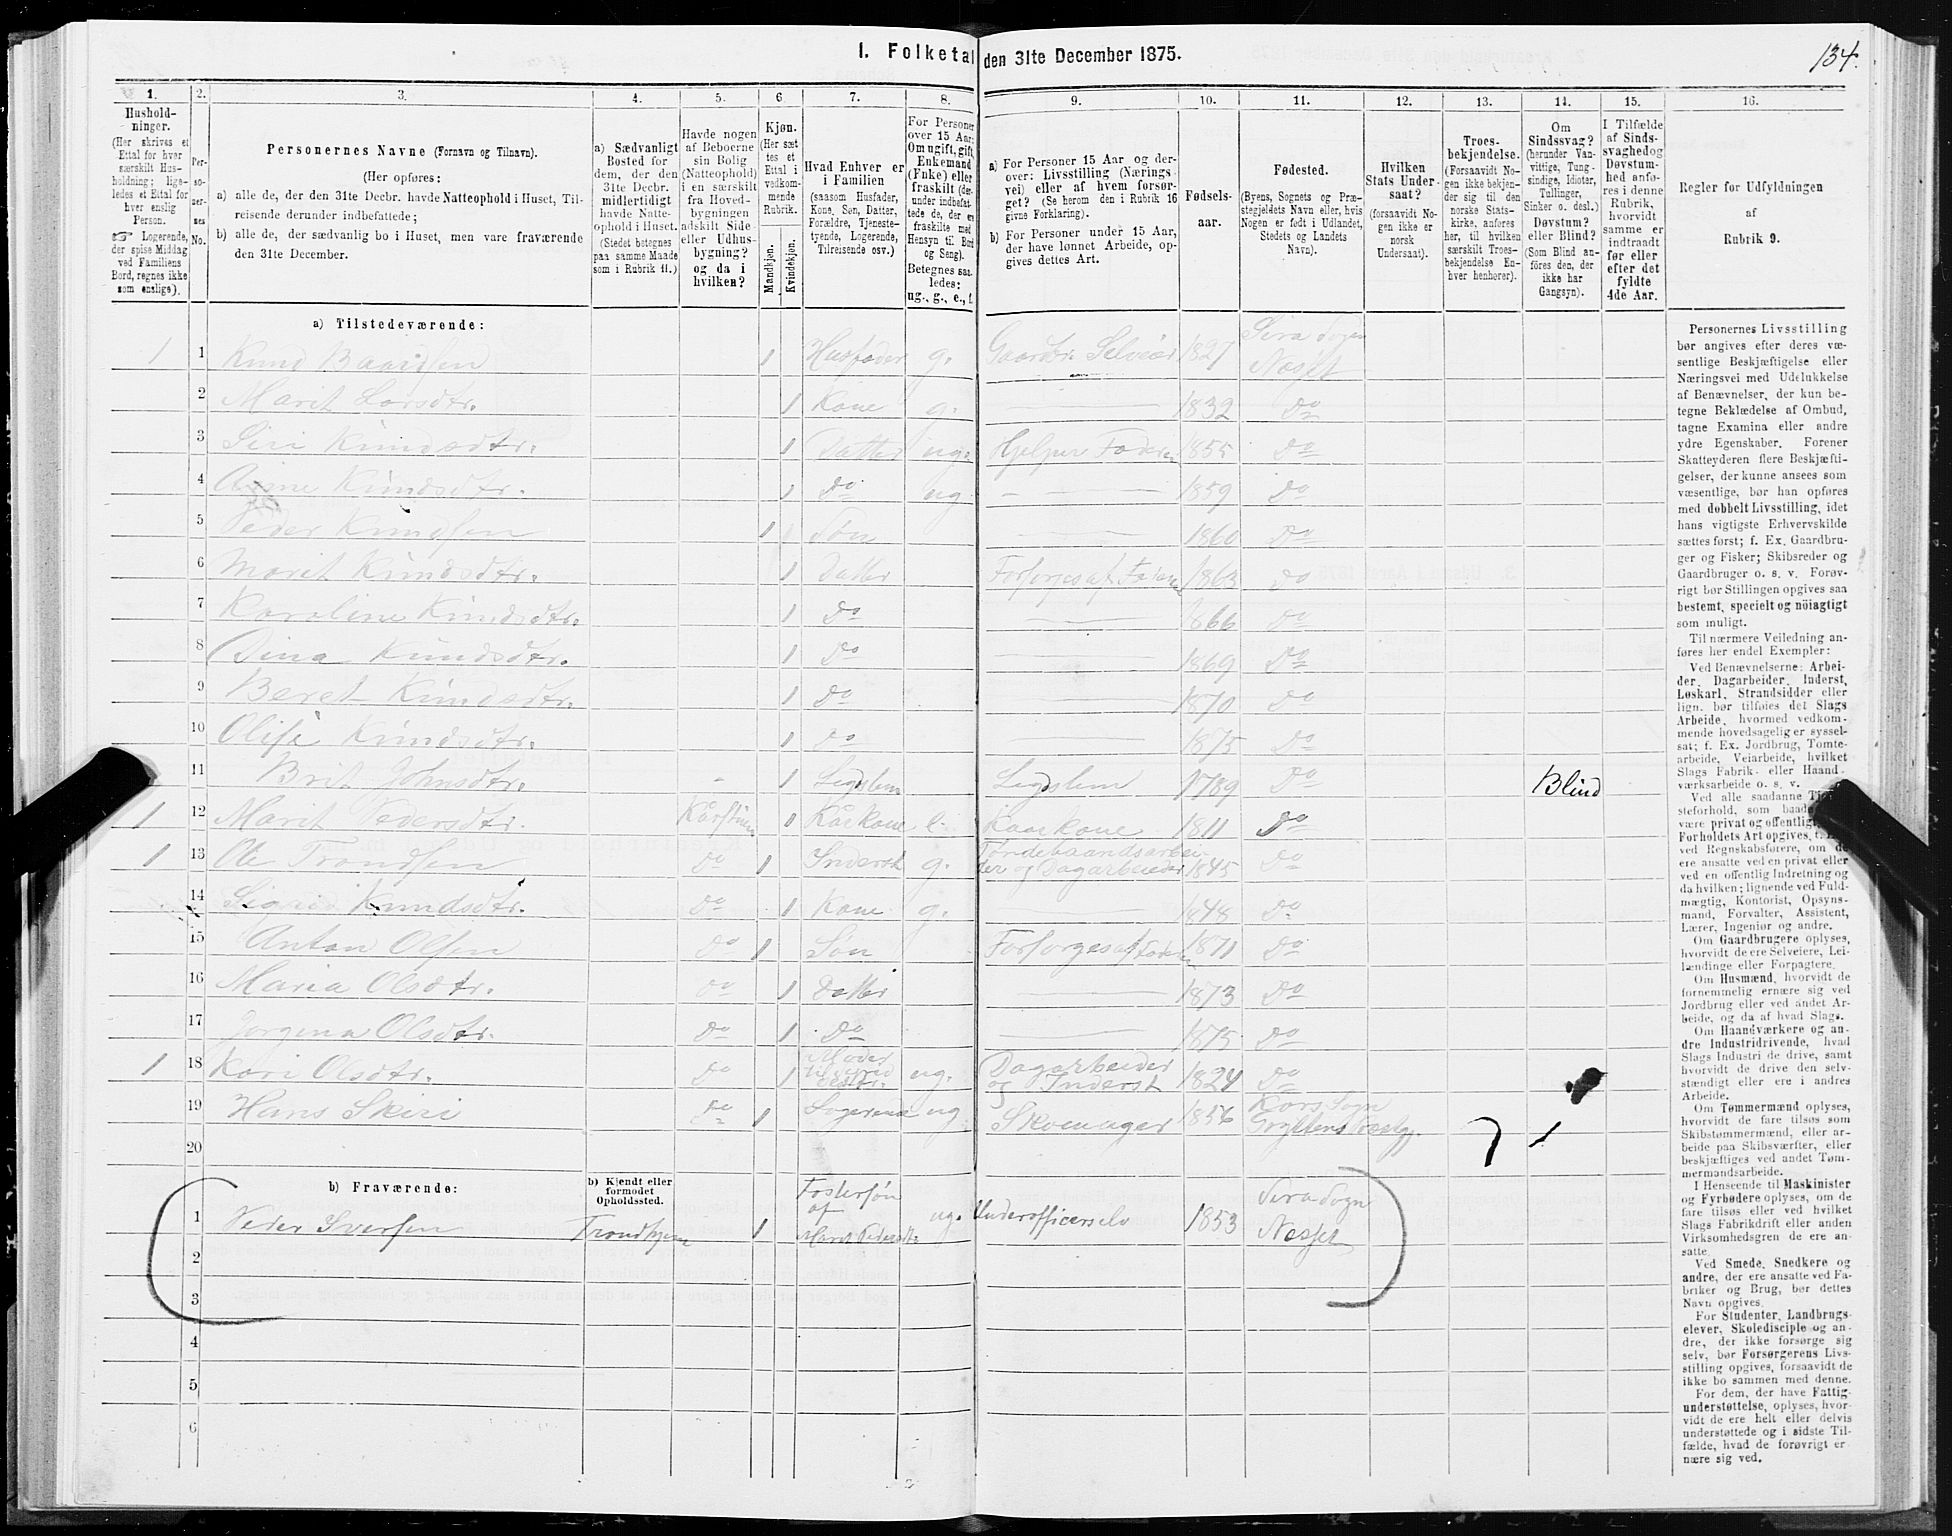 I. Folketal den 31te December 1875.
134.
1. 2. 3. 4. 5. 6. 7. 8. 9. 10. 11. 12. 13. 14. 15. 16.
Hushold-
ninger.
(Her skrives et
Ettal for hver
særskilt Hus-
holdning; lige-
ledes et Ettal for
hver enslig
Person.
☞ Logerende,
der spise Middag
ved Familiens
Bord, regnes ikke
som enslige).
Per-
so-
ner-
nes
No.
Personernes Navne (Fornavn og Tilnavn).
(Her opføres:
a) alle de, der den 31te Decbr. havde Natteophold i Huset, Til-
reisende derunder indbefattede;
b) alle de, der sædvanlig bo i Huset, men vare fraværende
den 31te December.
a) Sædvanligt
Bosted for
dem, der den
31te Decbr.
midlertidigt
havde Natte-
ophold i Huset.
(Stedet betegnes
paa samme Maade
som i Rubrik 11.)
Havde nogen
af Beboerne
sin Bolig
(Natteophold)
i en særskilt
fra Hoved-
bygningen
adskilt Side-
eller Udhus-
bygning?
og da i
hvilken?
Kjøn.
(Her sæt-
tes et
Ettal i
vedkom-
mende
Rubrik.
Mandkjøn.
Kvindekjøn.
Hvad Enhver er
i Familien
(saasom Husfader,
Kone, Søn, Datter,
Forældre, Tjeneste-
tyende, Logerende,
Tilreisende osv.)
For Personer
over 15 Aar:
Om ugift, gift,
Enkemand
(Enke) eller
fraskilt (der-
under indbefat-
tede de, der er
fraskilte med
Hensyn til Bord
og Seng).
Betegnes saa-
ledes:
ug., g., e., f.
a) For Personer 15 Aar og der-
over: Livsstilling (Nærings-
vei) eller af hvem forsør-
get? (Se herom den i Rubrik 16
givne Forklaring).
b) For Personer under 15 Aar,
der have lønnet Arbeide, op-
gives dettes Art.
Fødsels-
aar.
Fødested.
(Byens, Sognets og Præ-
stegjeldets Navn eller, hvis
Nogen er født i Udlandet,
Stedets og Landets
Navn).
Hvilken
Stats Under-
saat?
(forsaavidt No-
gen ikke er
norsk
Undersaat).
Troes-
bekjendelse.
(Forsaavidt No-
gen ikke bekjen-
der sig til den
norske Stats-
kirke, anføres
her, til hvilken
særskilt Troes-
bekjendelse En-
hver henhører).
Om
Sindssvag?
(herunder Van-
vittige, Tung-
sindige, Idioter,
Tullinger,
Sinker o. desl.)
Døvstum?
eller Blind?
(Som Blind an-
føres den, der
ikke har
Gangsyn).
I Tilfælde
af Sinds-
svaghed og
Døvstum-
hed anfø-
res i denne
Rubrik,
hvorvidt
samme er
indtraadt
før eller
efter det
fyldte
4de Aar.
Regler for Udfyldningen
af
Rubrik 9.
a) Tilstedeværende:
1 1 Knud Baardsen 1 Husfader g. Gaardbr. Selveier 1827 Sira Sogn Nesset
2 Marit Larsdtr. 1 Kone g. 1832 Do
3 Siri Knudsdtr. 1 Datter ug. Hjelper Faderen 1855 Do
4 Anne Knudsdtr. 1 Do ug 1859 Do
5 Peder Knudsen 1 Søn 1860 Do
6 Marit Knudsdtr. 1 Datter Forsørges af Faderen 1863 Do
7 Karoline Knudsdtr. 1 Do 1866 Do
8 Dina Knudsdtr. 1 Do 1869 Do
9 Beret Knudsdtr. 1 Do 1870 Do
10 Knudsdtr. 1 Do 1875 Do
11 Brit Johnsdtr. 1 Legdslem Legdslem 1789 Do Blind
1 12 Marit Pedersdtr. 1 Kårkone e. Kaarkone 1811 Do
1 13 Ole Trondsen Do 1 Inderst g. Tøndebaandsarbei-
der og Dagarbeider 1845 Do
14 Sigrid Knudsdtr. Do 1 Kone g. 1848 Do
15 Anton Olsen Do 1 Søn Forsørges af Faderen 1871 Do
16 Maria Olsdtr. Do 1 Datter 1873 Do
17 Jørgena Olsdtr. Do 1 Do 1875 Do
1 18 Kari Olsdtr. Do 1 Moder ug. Dagarbeider
og Inderst 1824 Do
19 Hans Skiri Do 1 Logerende ug. Skomager 1856 Kors Sogn
Gryttens Prestgj.
20
b) Fraværende:
b) Kjendt eller
formodet
Opholdssted.
1 Peder Iversen Trondhjem 1 Fostersøn
af
Marit Pedersdtr. ug. Underofficerselv 1853 Sira Sogn
Nesset
2
3
4
5
6
Personernes Livsstilling
bør angives efter deres væ-
sentlige Beskjæftigelse eller
Næringsvei med Udelukkelse
af Benævnelser, der kun be-
tegne Beklædelse af Ombud,
tagne Examina eller andre
ydre Egenskaber. Forener
Skatteyderen flere Beskjæfti-
gelser, der kunne ansees som
væsentlige, bør han opføres
med dobbelt Livsstilling, idet
hans vigtigste Erhvervskilde
sættes først; f. Ex. Gaardbru-
ger og Fisker; Skibsreder og
Gaardbruger o. s. v. Forøv-
rigt bør Stillingen opgives saa
bestemt, specielt og nöiagtigt
som muligt.
Til nærmere Veiledning an-
føres her endel Exempler:
Ved Benævnelserne: Arbei-
der, Dagarbeider, Inderst,
Løskarl, Strandsidder eller
lign. bør tilføies det Slags
Arbeide, hvormed vedkom-
mende hovedsagelig er syssel-
sat; f. Ex. Jordbrug, Tomte-
arbeide, Veiarbeide, hvilket
Slags Fabrik- eller Haand-
værksarbeide o. s. v.
Ved alle saadanne
steforhold, som
være privat og offentlig,
Forholdets Art opgives,
ved Regnskabsførere, om de
ere ansatte ved en privat eller
ved en offentlig Indretning og
da hvilken; lignende ved Fuld-
mægtig, Kontorist, Opsyns-
mand, Forvalter, Assistent,
Lærer, Ingeniør og andre.
Om Gaardbrugere oplyses,
hvorvidt de ere Selveiere, Lei-
lændinge eller Forpagtere.
Om Husmænd, hvorvidt de
fornemmelig ernære sig ved
Jordbrug eller ved andet Ar-
beide, og da af hvad Slags.
Om Haandværkere og an-
dre Industridrivende, hvad
Slags Industri de drive, samt
hvorvidt de drive den selv-
stændigt eller ere i andres
Arbeide.
Om Tømmermænd oplyses,
hvorvidt de fare tilsøs som
Skibstømmermænd, eller ar-
beide paa Skibsværfter, eller
beskjæftiges ved andet Tøm-
mermandsarbeide.
I Henseende til Maskinister
og Fyrbødere oplyses, om de
fare tilsøs eller ved hvilket
Slags Fabrikdrift eller anden
Virksomhedsgren de ere an-
satte.
Ved Smede, Snedkere og
andre, der ere ansatte ved Fa-
briker og Brug, bør dettes
Navn opgives.
For Studenter, Landbrugs-
elever, Skoledisciple og an-
dre, der ikke forsørge sig
selv, bør Forsørgerens Livs-
stilling opgives, forsaavidt de
ikke bo sammen med denne.
For dem, der have Fattig-
understøttelse, oplyses, hvor-
vidt de ere helt eller delvis
understøttede og i sidste Til-
fælde, hvad de forøvrigt er-
nære sig ved.